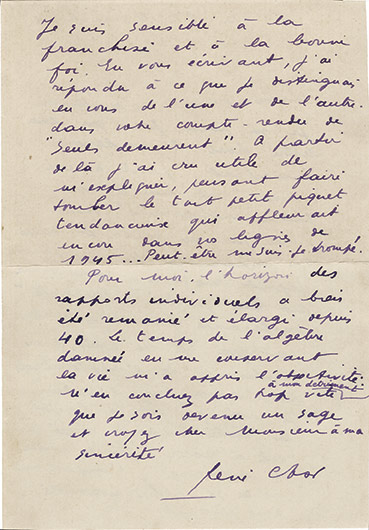 Je suis sensible à la
franchise et à la bonne
foi. En vous écrivant, j'ai
répondu à ce que je distinguais
en vous de l'une et de l'autre
dans votre compte-rendu de
"Seuls demeurent". A partir
de là j'ai cru utile de
m'expliquer, pensant faire
tomber le tout petit piquet
tendancieux qui affleurait
encore dans vos lignes de
1945... Peut-être me suis-je trompé.
Pour moi, l'horizon des
rapports individuels a bien
été remanié et élargi depuis
40. Le temps de l'algèbre
damnée en me conservant
la vie m'a appris l'objectivité
à mon detriment
N'en concluez pas trop vite
que je sois devenu un sage
et croyez cher Monsieur à ma
sincérité
René Char